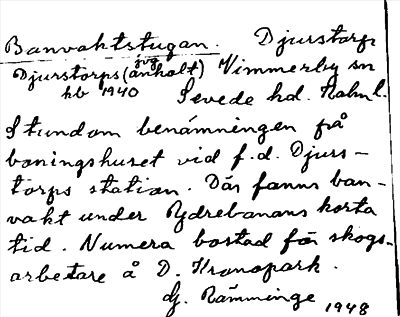 Banvaktstugan. Djurstorp
Djurstorps (jvg anhalt) Vimmerby sn
hb 1940 Sevede hd. Kalm l.
Stundom benämningen på
boningshuset vid f.d. Djurs-
torps station. Där fanns ban-
vakt under Ydrebanans korta
tid. Numera bostad för skogs-
arbetare å D. Kronopark.
Hj. Rämminge 1948